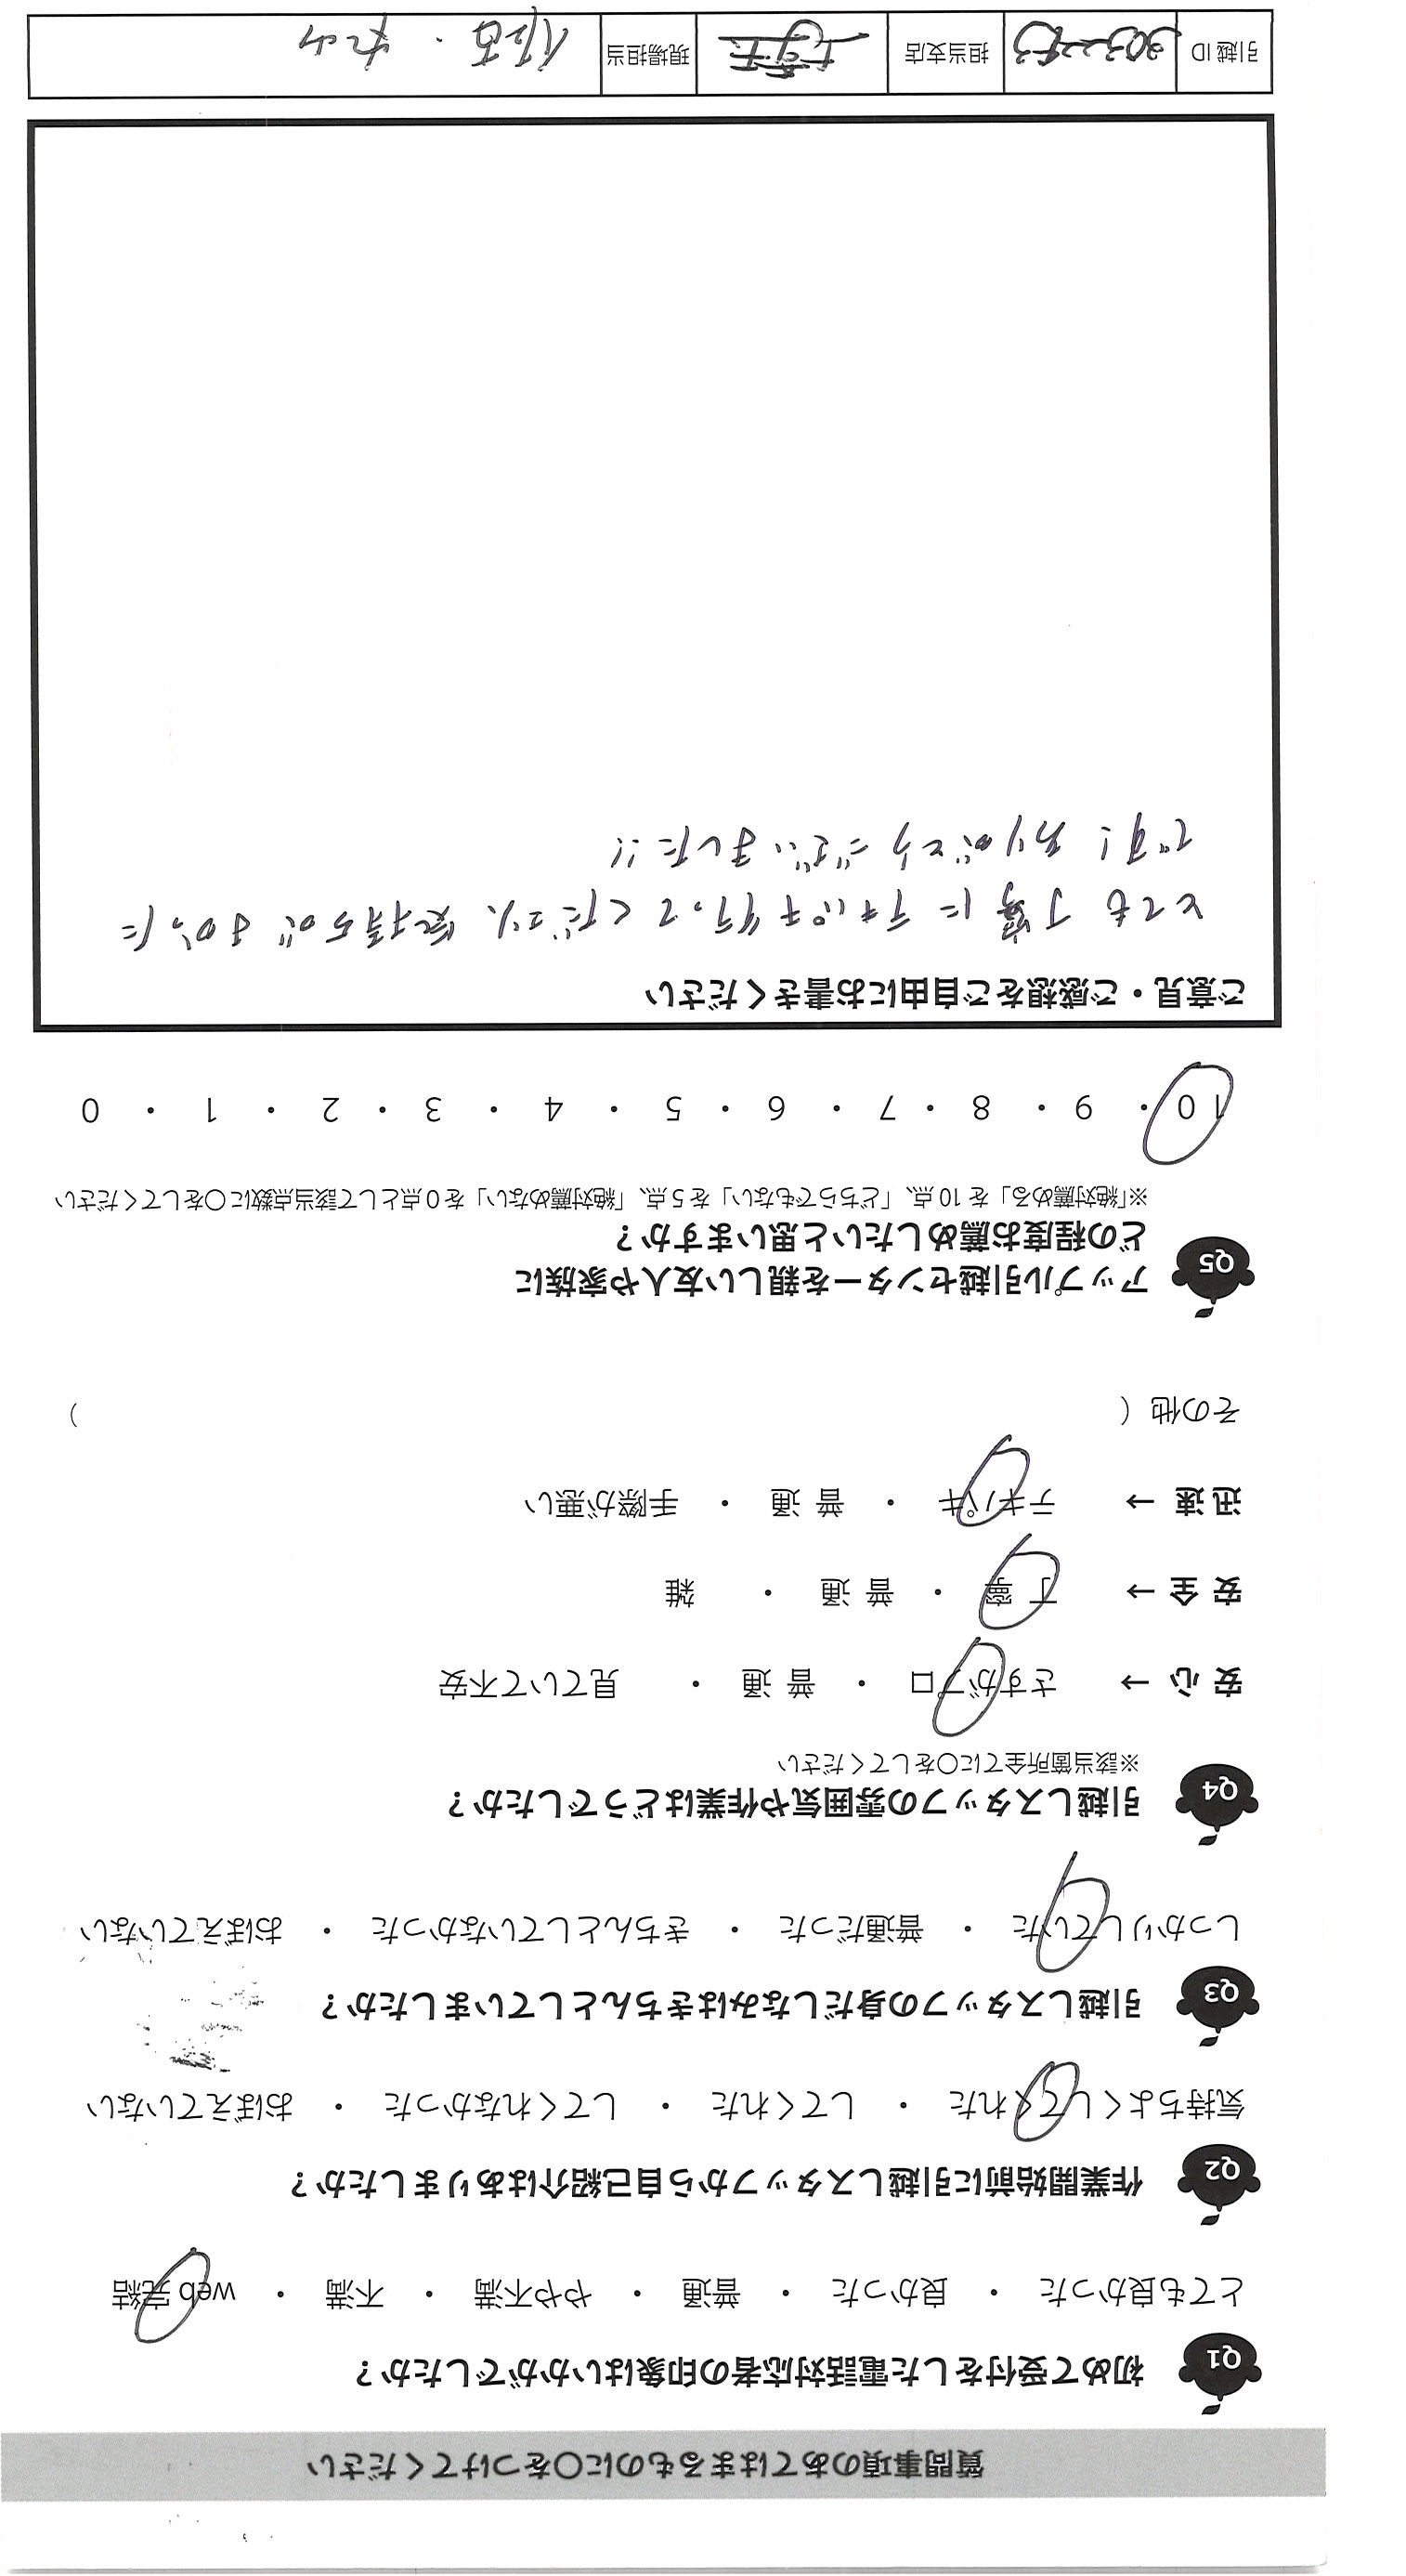 質問事項のあてはまるものに〇をつけてください
Q1 初めて受付をした電話対応者の印象はいかがでしたか？
とても良かった ・ 良かった ・ 普通 ・ やや不満 ・ 不満 ・ web完結
Q2 作業開始前に引越しスタッフから自己紹介はありましたか？
気持ちよくしてくれた ・ してくれた ・ してくれなかった ・ おぼえていない
Q3 引越しスタッフの身だしなみはきちんとしていましたか？
しっかりしていた ・ 普通だった ・ きちんとしていなかった ・ おぼえていない
Q4 引越しスタッフの雰囲気や作業はどうでしたか？
※該当箇所全てに〇をしてください
安心→ さすがプロ ・ 普通 ・ 見ていて不安
安全→ 丁寧 ・ 普通 ・ 雑
迅速→ テキパキ ・ 普通 ・ 手際が悪い
その他（ ）
Q5 アップル引越センターを親しい友人や家族に
どの程度お薦めしたいと思いますか？
※「絶対薦める」を10点、「どちらでもない」を5点、「絶対薦めない」を0点として該当点数に〇をしてください
10 ・ 9 ・ 8 ・ 7 ・ 6 ・ 5 ・ 4 ・ 3 ・ 2 ・ 1 ・ 0
ご意見・ご感想をご自由にお書きください
とても丁寧にテキパキ行ってくださり、気持ちがよかった
です！ ありがとうございました!!
引越ID 担当支店 現場担当